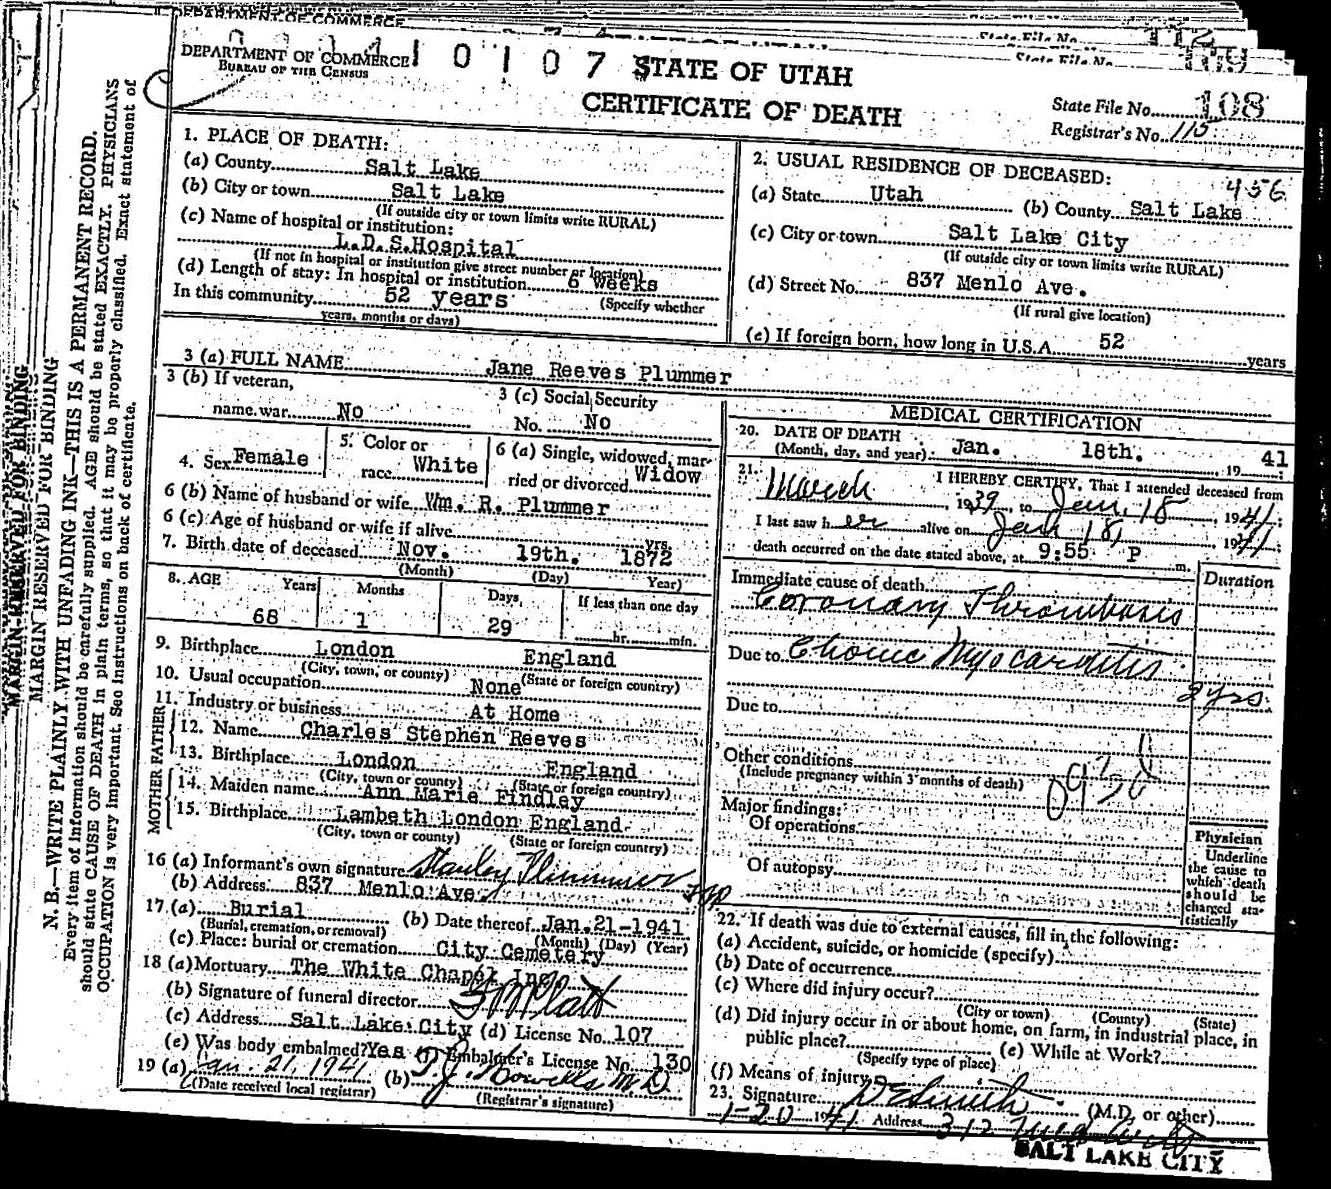 DEPARTMENT OF COMMERCE
DEPARTMENT OF COMMERCE
BUREAU OF THE CENSUS
1 0 1 0 7
STATE OF UTAH
CERTIFICATE OF DEATH
State File No. 108
Registrar's No. 115
1. PLACE OF DEATH:
(a) County Salt Lake
(b) City or town Salt Lake
(If outside city or town limits write RURAL)
(c) Name of hospital or institution:
L.D.S.Hospital
(If not in hospital or institution give street number or location)
(d) Length of stay: In hospital or institution 6 weeks
In this community 52 years (Specify whether
years, months or days)
2. USUAL RESIDENCE OF DECEASED:
456
(a) State Utah (b) County Salt Lake
(c) City or town Salt Lake City
(If outside city or town limits write RURAL)
(d) Street No. 837 Menlo Ave.
(If rural give location)
(e) If foreign born, how long in U.S.A. 52 years
3 (a) FULL NAME Jane Reeves Plummer
3 (b) If veteran,
name war No
3 (c) Social Security
No. No
4. Sex Female
5. Color or
race White
6 (a) Single, widowed, mar-
ried or divorced Widow
6 (b) Name of husband or wife Wm. R. Plummer
6 (c) Age of husband or wife if alive yrs.
7. Birth date of deceased Nov. 19th. 1872
(Month) (Day) Year)
8. AGE Years Months Days If less than one day
68 1 29 hr. min.
9. Birthplace London England
(City, town, or county) (State or foreign country)
10. Usual occupation None
11. Industry or business At Home
FATHER
12. Name Charles Stephen Reeves
13. Birthplace London England
(City, town or county) (State or foreign country)
MOTHER
14. Maiden name Ann Marie Findley
15. Birthplace Lambeth London England
(City, town or county) (State or foreign country)
16 (a) Informant's own signature Stanley Plummer
(b) Address 837 Menlo Ave.
17. (a) Burial (b) Date thereof Jan.21-1941
(Burial, cremation, or removal) (Month) (Day) (Year)
(c) Place: burial or cremation City Cemetery
18 (a) Mortuary The White Chapel Inc
(b) Signature of funeral director
(c) Address Salt Lake City (d) License No. 107
(e) Was body embalmed? Yes Embalmer's License No. 130
19 (a) Jan. 21, 1941 (b) T. J. Howells, M.D.
(Date received local registrar) (Registrar's signature)
MEDICAL CERTIFICATION
20. DATE OF DEATH
(Month, day, and year) Jan. 18th. 19 41
21. I HEREBY CERTIFY, That I attended deceased from
March 1939 to Jan. 18, 1941;
I last saw h er alive on Jan 18, 1941;
death occurred on the date stated above, at 9:55 P m.
Duration
Immediate cause of death
Coronary Thrombosis
Due to Chronic Myocarditis
2 yrs.
Due to
Other conditions
(Include pregnancy within 3 months of death)
Major findings:
Of operations
Of autopsy
Physician
Underline
the cause to
which death
should be
charged sta-
tistically
22. If death was due to external causes, fill in the following:
(a) Accident, suicide, or homicide (specify)
(b) Date of occurrence
(c) Where did injury occur?
(City or town) (County) (State)
(d) Did injury occur in or about home, on farm, in industrial place, in
public place?
(Specify type of place) (e) While at Work?
(f) Means of injury
23. Signature Smith (M.D. or other)
1-20 1941 Address 312
SALT LAKE CITY
MARGIN RESERVED FOR BINDING
N. B.—WRITE PLAINLY, WITH UNFADING INK—THIS IS A PERMANENT RECORD.
Every item of information should be carefully supplied. AGE should be stated EXACTLY. PHYSICIANS
should state CAUSE OF DEATH in plain terms, so that it may be properly classified. Exact statement of
OCCUPATION is very important. See instructions on back of certificate.